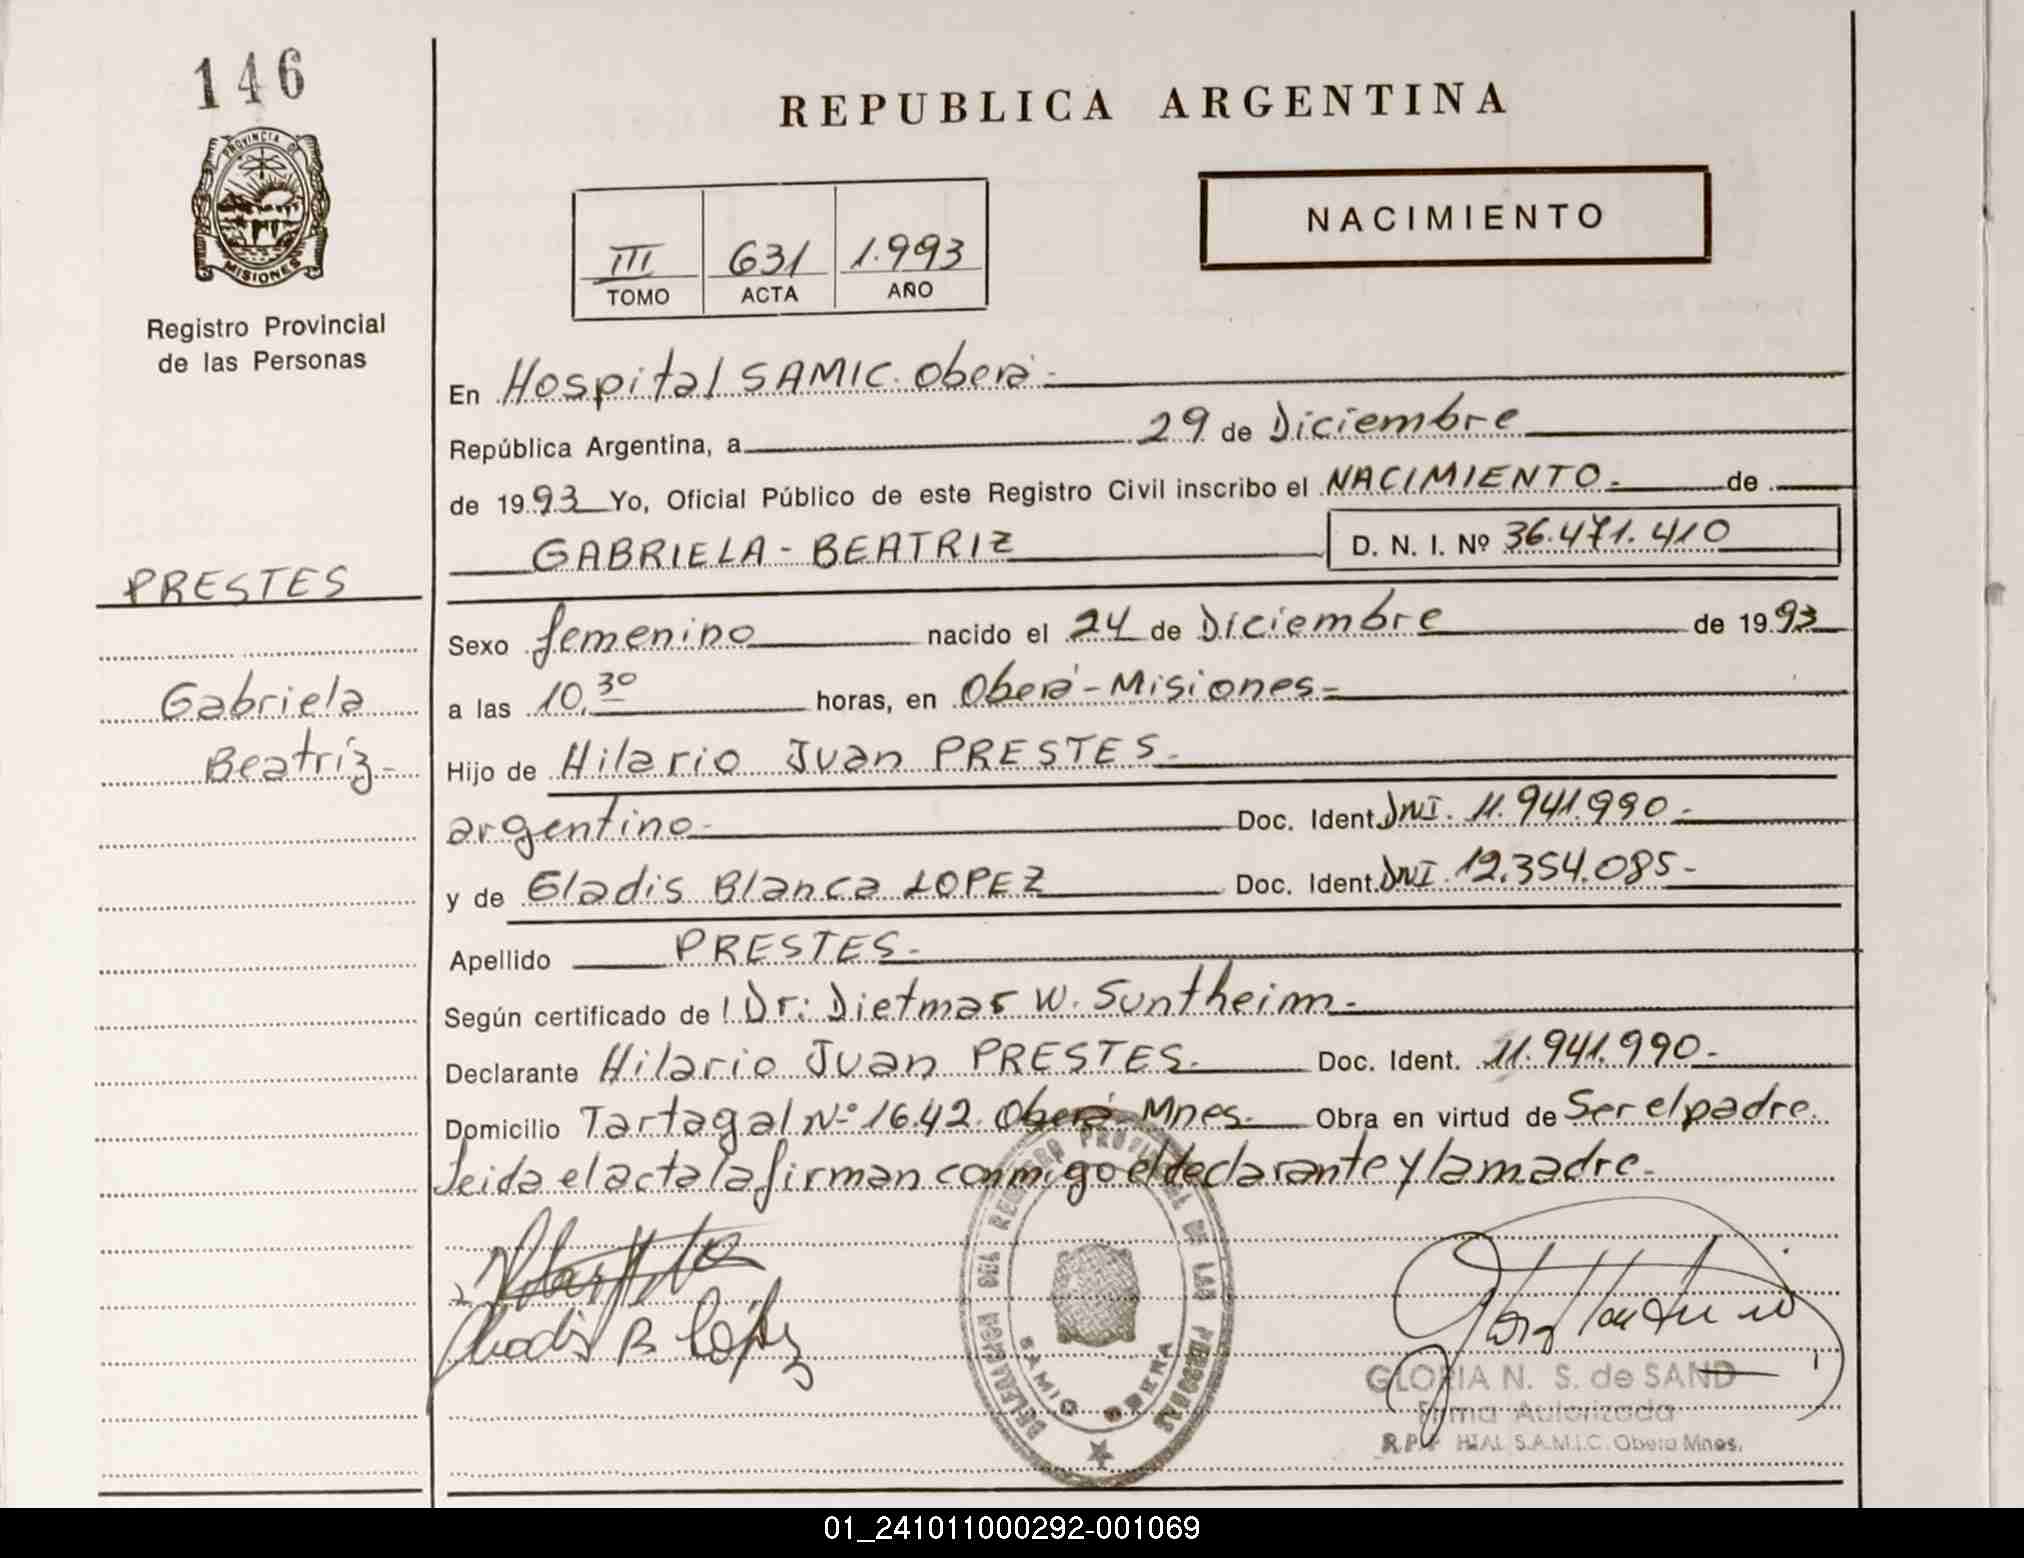 146
PROVINCIA DE
MISIONES
Registro Provincial
de las Personas
REPUBLICA ARGENTINA
III 631 1.993
TOMO ACTA AÑO
NACIMIENTO
En Hospital SAMIC. Oberá.-
República Argentina, a 29 de Diciembre
de 1993 Yo, Oficial Público de este Registro Civil inscribo el NACIMIENTO.- de
GABRIELA - BEATRIZ D. N. I. Nº 36.471.410
PRESTES
Gabriela
Beatriz.-
Sexo femenino nacido el 24 de Diciembre de 1993
a las 10.30 horas, en Oberá - Misiones.-
Hijo de Hilario Juan PRESTES.-
argentino.- Doc. Ident. DNI. 11.941.990.-
y de Gladis Blanca LOPEZ Doc. Ident. DNI. 12.354.085.-
Apellido PRESTES.-
Según certificado de Dr: Dietmar W. Suntheim.-
Declarante Hilario Juan PRESTES.- Doc. Ident. 11.941.990.-
Domicilio Tartagal Nº 1642. Oberá Mnes.- Obra en virtud de Ser el padre.
Leida el acta la firman conmigo el declarante y la madre.-
B López
DELEGACION DEL REGISTRO PROVINCIAL DE LAS PERSONAS
SAMIC OBERA
GLORIA N. S. de SAND
Firma Autorizada
R.P.P HTAL S.A.M.I.C. Obera Mnes.
01_241011000292-001069